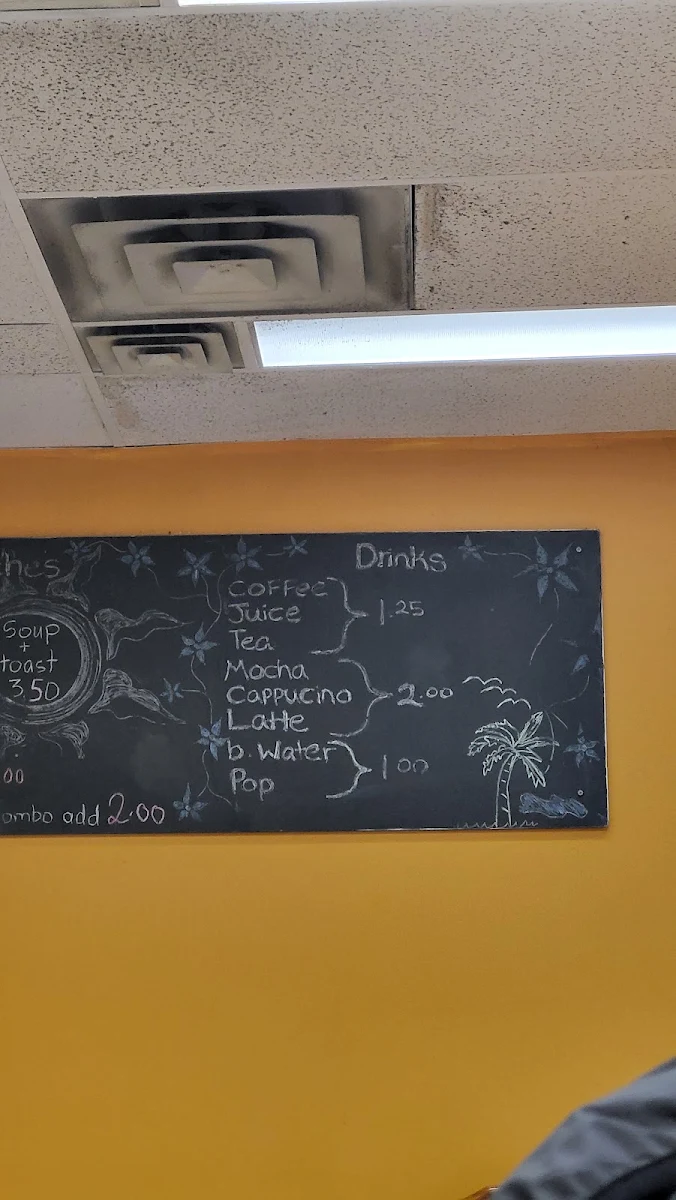 Soup
+
toast
3.50
00
add 2.00
Drinks
Coffee
Juice
Tea
1.25
Mocha
Cappucino
Latte
2.00
b. Water
Pop
1.00